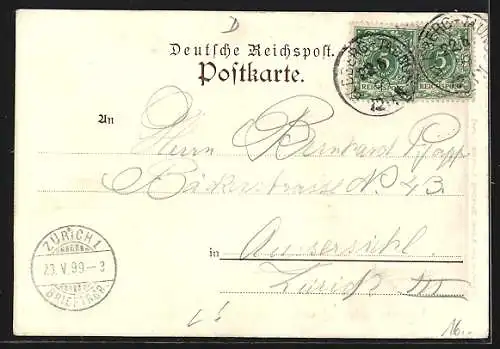 D
Deutsche Reichspost.
Postkarte.
5 5
REICHSPOST REICHSPOST
An
Herrn Bernhard
Bäckerstrasse No 43.
in Aussersihl
Zürich III
ZÜRICH 1
23. V. 99 – 3
BRIEFTRGR.
16.-